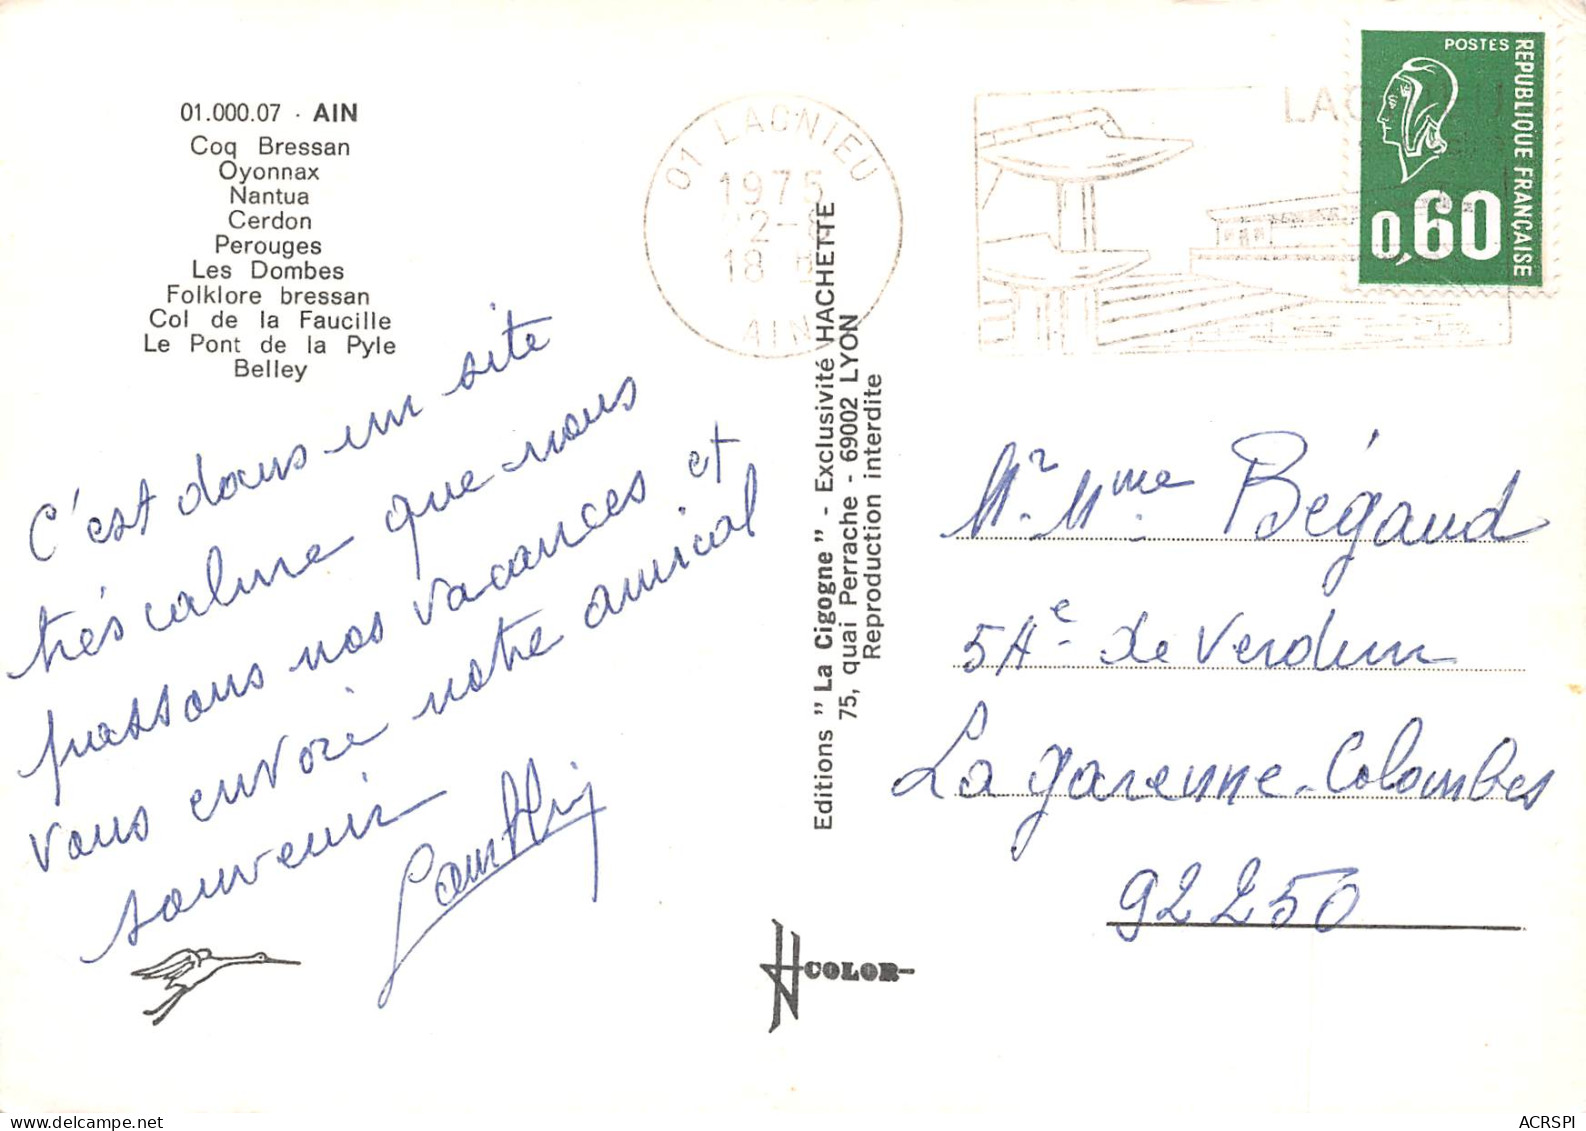 01.000.07 · AIN
Coq Bressan
Oyonnax
Nantua
Cerdon
Perouges
Les Dombes
Folklore bressan
Col de la Faucille
Le Pont de la Pyle
Belley
C'est dans un site
très calme que nous
passons nos vacances et
vous envoie notre amical
souvenir
Editions "La Cigogne" - Exclusivité HACHETTE
75, quai Perrache - 69002 LYON
Reproduction interdite
COLOR
01 LAGNIEU
1975
18 H
AIN
POSTES
REPUBLIQUE FRANÇAISE
0,60
Mr. Mme. Bégaud
5 Ae. de Verdun
La Garenne-Colombes
92250
ACRSPI